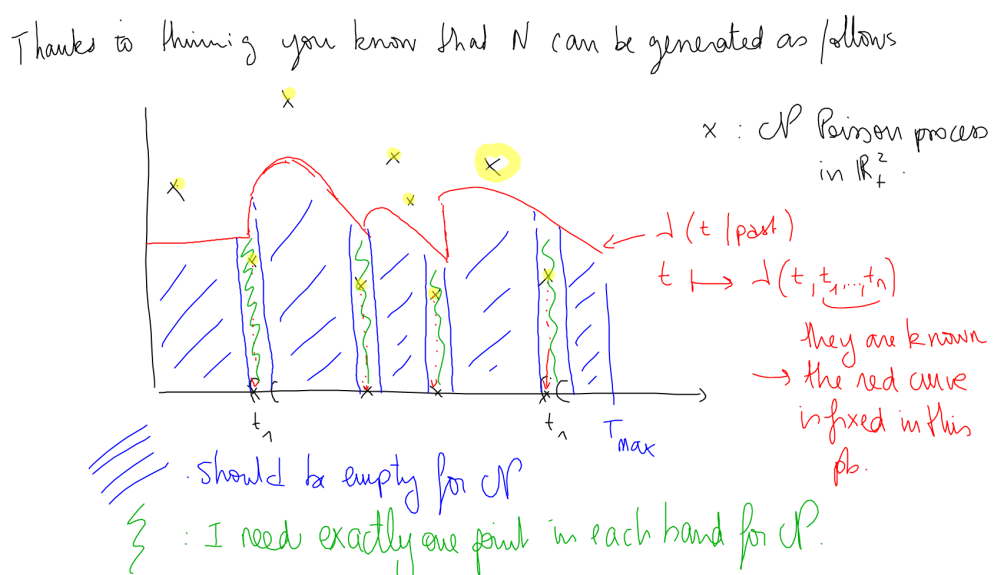 Thanks to thinning you know that N can be generated as follows
x : 𝒩 Poisson process
in ℝ₊².
λ(t/past)
t ↦ λ(t, t₁,..., tₙ)
they are known
→ the red curve
is fixed in this
pb.
t₁
tₙ
Tmax
: should be empty for 𝒩
: I need exactly one point in each band for 𝒩.